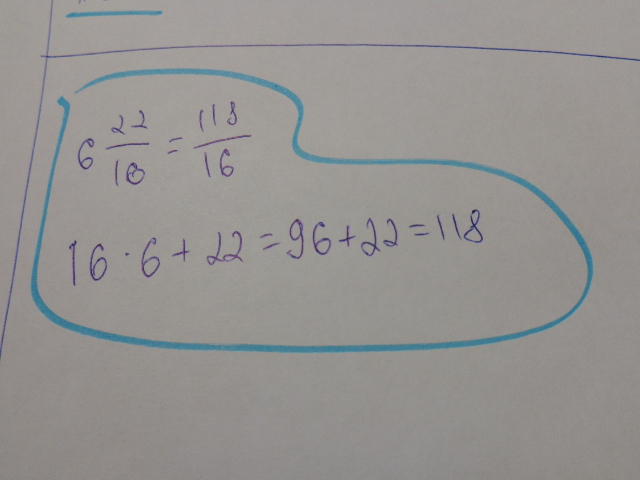 6 22/16 = 118/16
16 · 6 + 22 = 96 + 22 = 118